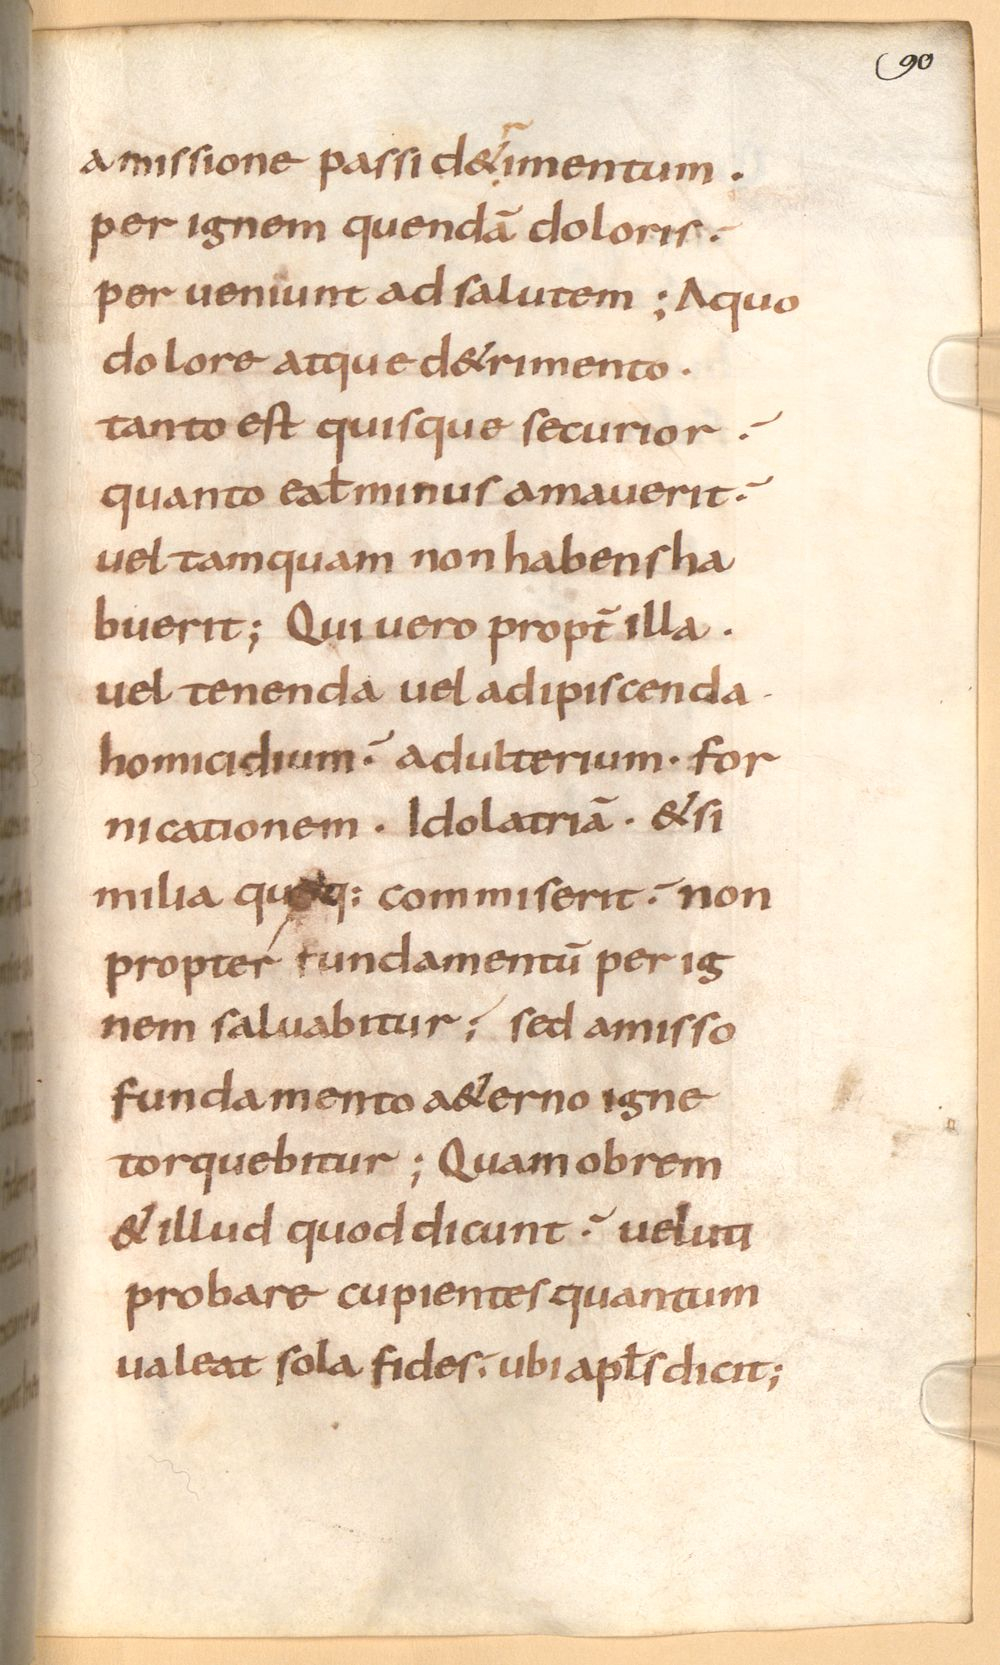 90
amissione passi d&rimentum .
per ignem quendā doloris .
per ueniunt ad salutem ; A quo
dolore atque d&rimento .
tanto est quisque securior .
quanto eat minus amauerit .
uel tamquam non habens ha
buerit ; Qui uero propt̄ illa .
uel tenenda uel adipiscenda .
homicidium . adulterium . for
nicationem . Idolatriā . & si
milia quoq: commiserit . non
propter fundamentū per ig
nem saluabitur ; sed amisso
fundamento a&erno igne
torquebitur ; Quam obrem
& illud quod dicunt . ueluti
probare cupientes quantum
ualeat sola fides . ubi apłs dicit ;